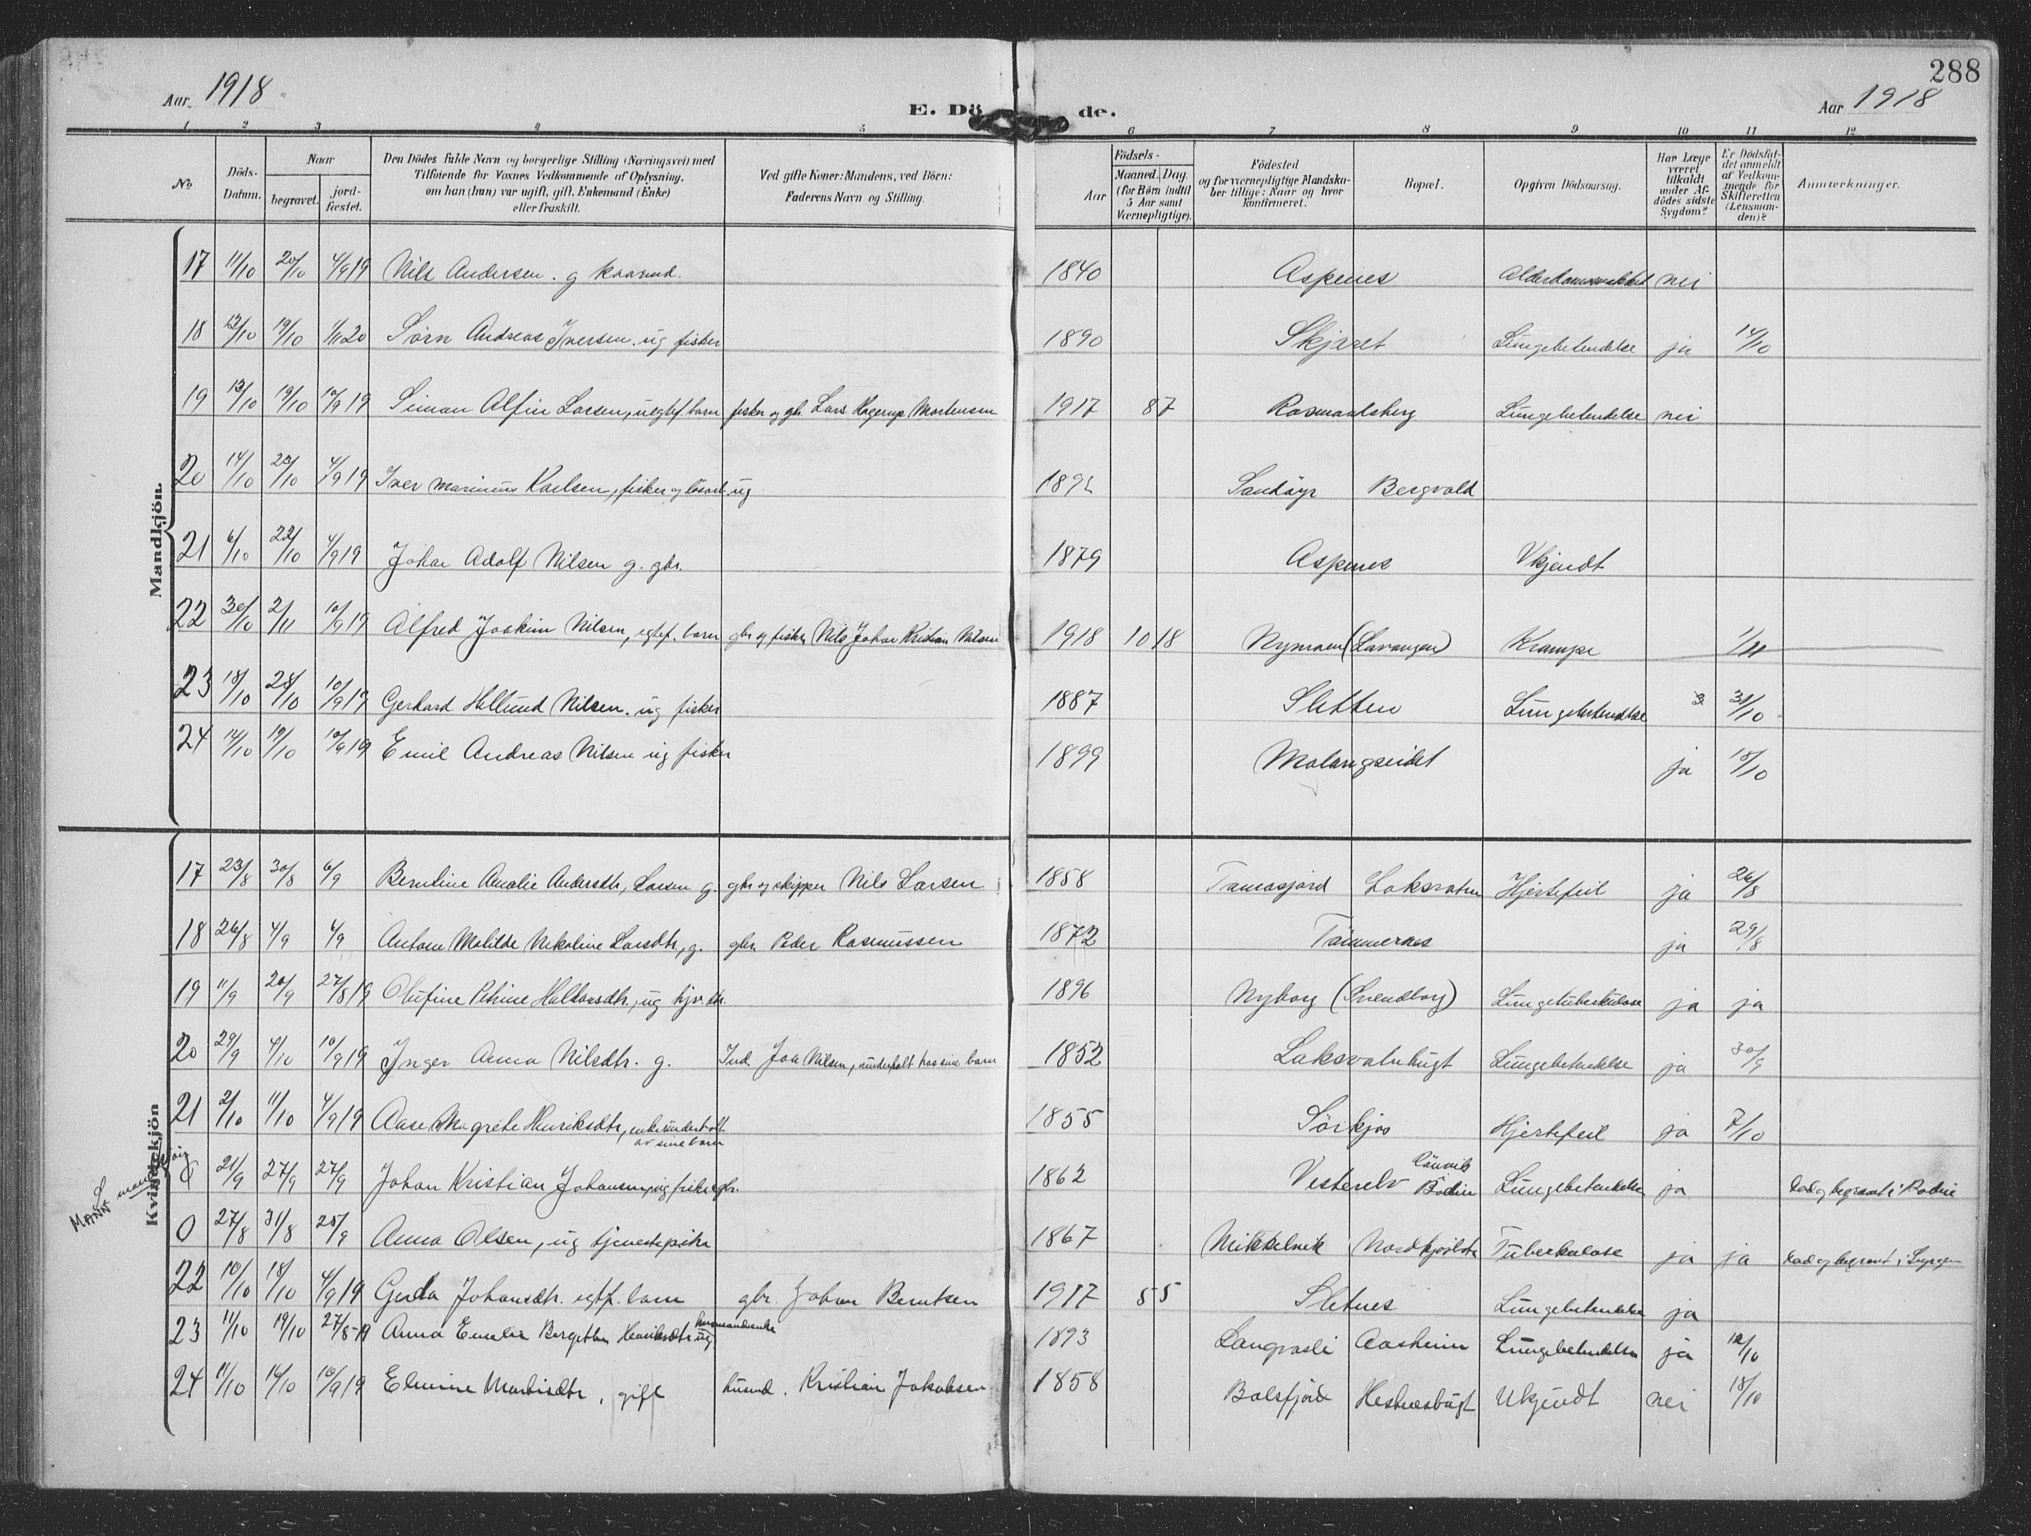 288
Aar 1918
E. Döde.
Aar 1918
1 2 3 4 5 6 7 8 9 10 11 12
No
Döds-Datum.
Naar
begravet.
jord-fæstet.
Den Dödes fulde Navn og borgerlige Stilling (Næringsvei) med
Tilföiende for Voxnes Vedkommende af Oplysning,
om han (hun) var ugift, gift, Enkemand (Enke)
eller fraskilt.
Ved gifte Koner: Mandens, ved Börn:
Faderens Navn og Stilling.
Födsels-
Aar
Maaned. Dag.
(for Börn indtil
5 Aar samt
Værnepligtige).
Födested
og for værnepligtige Mandska-
ber tillige: Naar og hvor
konfirmeret.
Bopæl.
Opgiven Dödsaarsag.
Har Læge
været
tilkaldt
under Af-
dödes sidste
Sygdom?
Er Dödsfal-
det anmeldt
af Vedkom-
mende for
Skifteretten
(Lensman-
den)?
Anmærkninger.
Mandkjön.
17 11/10 20/10 4/9 19 Nils Andersen. g kaarmd. 1840 Aspenes nei
18 12/10 19/10 1/11 20 Sørn Andreas Iversen. ug fisker 1890 Skjæret Lungebetendelse ja 14/10
19 13/10 19/10 10/9 19 Simon Alfin Larsen, uegtef. barn fisker og gbr. Lars Hagerup Mortensen 1917 8 7 Lungebetendelse nei
20 14/10 4/9 19 Iver Marinius Karlsen, fisker og ug Sandøyr Bergvold
21 6/10 22/10 4/9 19 Johan Adolf Nilsen g. gbr. 1879 Aspenes Ukjendt
22 30/10 2/11 10/9 19 Alfred Joakim Nilsen, egtef. barn gbr og fisker Nils Johan Kristian Nilsen 1918 10 18 Nymoen (Lavangen) Krampe 1/11
23 18/10 28/10 10/9 19 Gerhard Hellund Nilsen. ug fisker 1887 Sletten Lungebetendelse 31/10
24 14/10 19/10 10/9 19 Emil Andreas Nilsen ug fisker 1899 Malangseidet ja 15/10
Kvindekjön
17 23/8 30/8 6/9 Berntine Amalie Andersdtr, Larsen g. gbr og skipper Nils Larsen 1858 Laksvatn Hjertefeil ja 26/8
18 26/8 4/9 4/9 Antone Matilde Nikoline Larsdtr, g. gbr. Peder Rasmussen 1872 Tømmernes ja 29/8
19 11/9 20/9 27/8 19 Olufine Petrine Haldorsdtr., ug 1896 Nyborg (Svendborg) Lungetuberkulose ja ja
20 29/9 4/10 10/9 19 Inger Anna Nilsdtr. g. Ind. Joa Nilsen, underholdt hos sine barn 1852 Laksvatnbugt Lungebetendelse ja 30/9
21 2/10 11/10 4/9 19 Aase Magrete Henriksdtr, enke underholdt
av sine barn 1855 Sørkjos Hjertefeil ja 7/10
MANN
0 21/9 27/9 27/9 Johan Kristian Johansen, ug fisker gbr. 1862 Vesterelv Bodin Lungebetendelse ja død og begravet i Bodin
0 27/8 31/8 25/9 Anna Olsen, ug tjenestepike 1867 Mikkelvik Tuberkulose ja ja død og begravet i Lyngen
22 10/10 18/10 4/9 19 Gerda Johansdtr. egtf. barn gbr. Johan Berntsen 1917 5 5 Sletnes Lungebetendelse ja
23 11/10 19/10 27/8 19 Anna Emelie Bergitha Henriksdtr. ug. 1893 Langvasli Aasheim Lungebetendelse ja 12/10
24 11/10 14/10 10/9 19 Elmine Martisdtr, gift husmd. Kristian Jakobsen 1858 Balsfjord Hestnesbugt Ukjendt nei 18/10